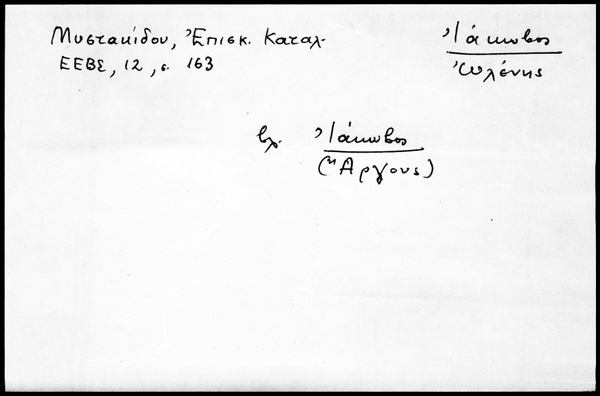 Μυστακίδου, Ἐπισκ. Καταλ.
ΕΕΒΣ, 12, σ. 163
Ἰάκωβος
Ὠλένης
βλ. Ἰάκωβος
(Ἄργους)